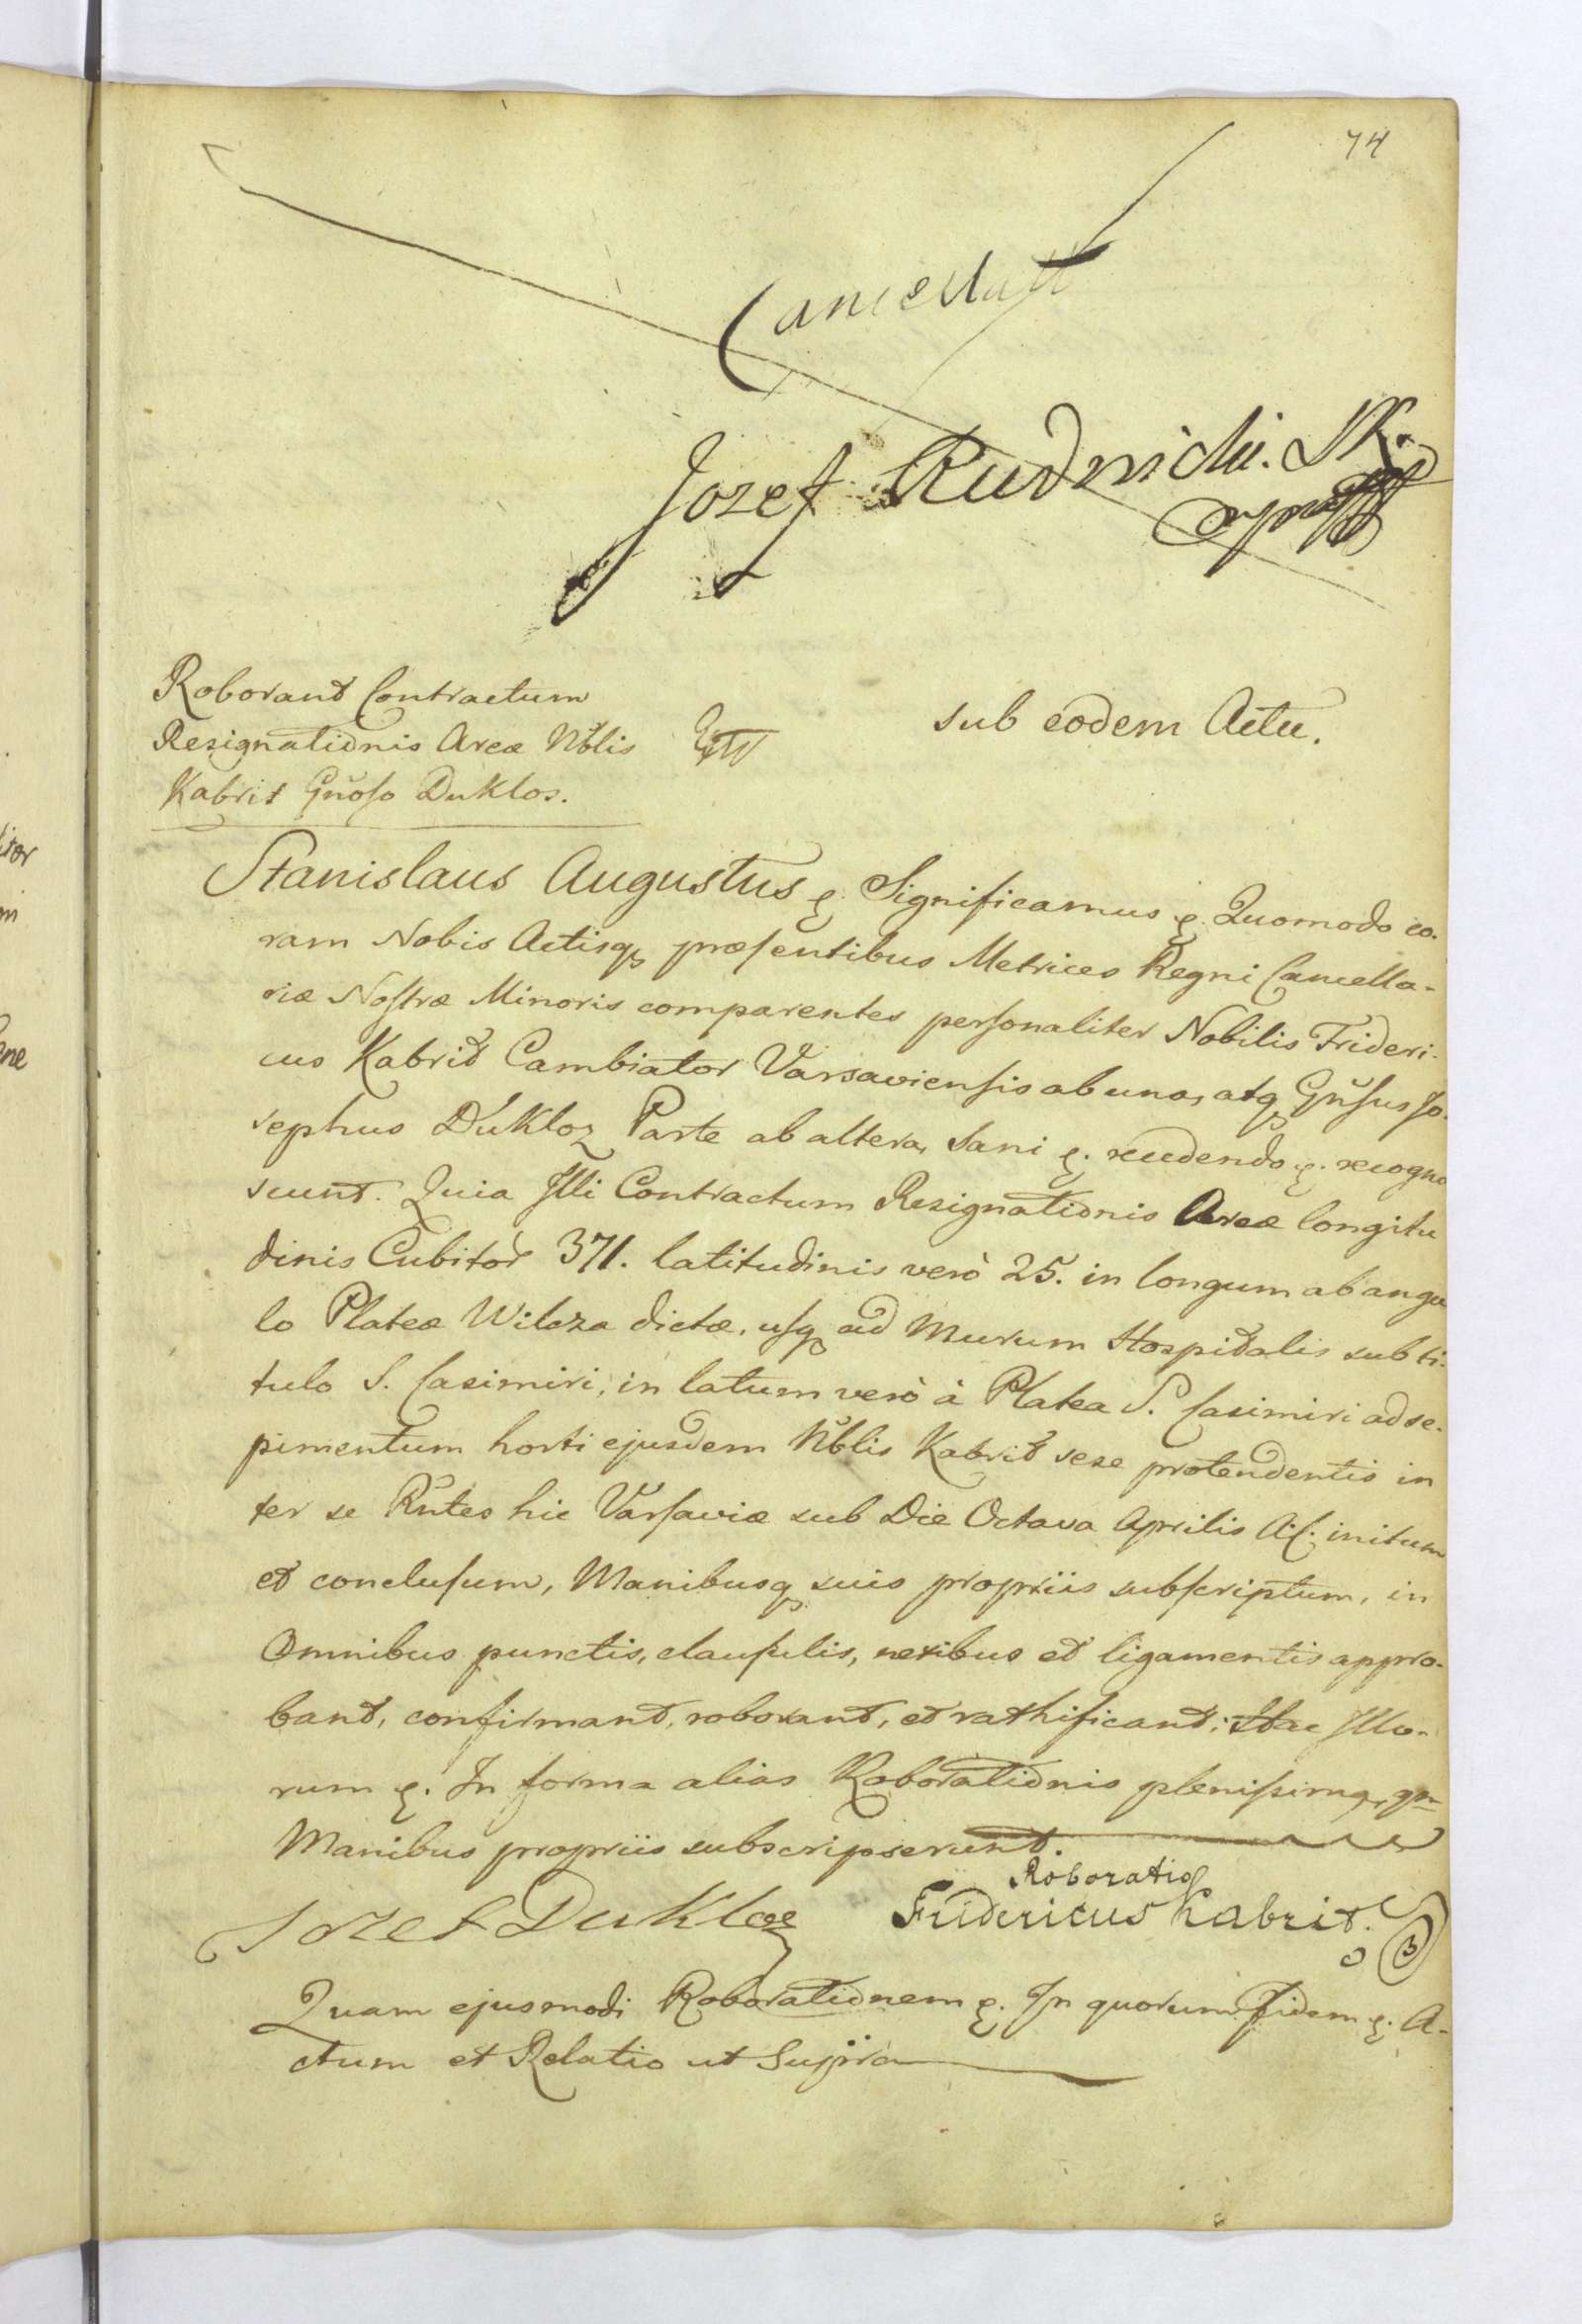 74
Cancellatt
Jozef Rudnicki. SK.
Roborant Contractum
Resignationis Areæ Nblis
Kabrit Gnoso Duklos.
Ext
sub eodem Actu.
Stanislaus Augustus &. Significamus &. Quomodo co-
ram Nobis Actisq, præsentibus Metrices Regni Cancella-
riæ Nostræ Minoris comparentes personaliter Nobilis Frideri-
cus Kabrit Cambiator Varsaviensis ab una, atq, Gnsus Jo-
sephus Dukloz Parte ab altera, Sani &. recedendo &. recogno
scunt. Quia Illi Contractum Resignationis Areæ longitu
dinis Cubitor 371. latitudinis verò 25. in longum ab angu
lo Plateæ Wilcza dictæ, usq, ad Murum Hospitalis sub ti-
tulo S. Casimiri, in latum verò à Platea S. Casimiri ad se-
pimentum horti ejusdem Nblis Kabrit sese protendentis in
ter se Rntes hic Varsaviæ sub Die Octava Aprilis A.C. initum
et conclusum, Manibusq, suis propriis subscriptum, in
Omnibus punctis, clausulis, nexibus et ligamentis appro-
bant, confirmant, roborant, et rathificant; Hac Illo-
rum &. In forma alias Roborationis plenissima, qm
Manibus propriis subscripserunt.
Roboratio
Jozef Dukloz Fridericus Kabrit.
3
Quam ejusmodi Roborationem &. In quorum Fidem &. A-
ctum et Relatio ut Supra